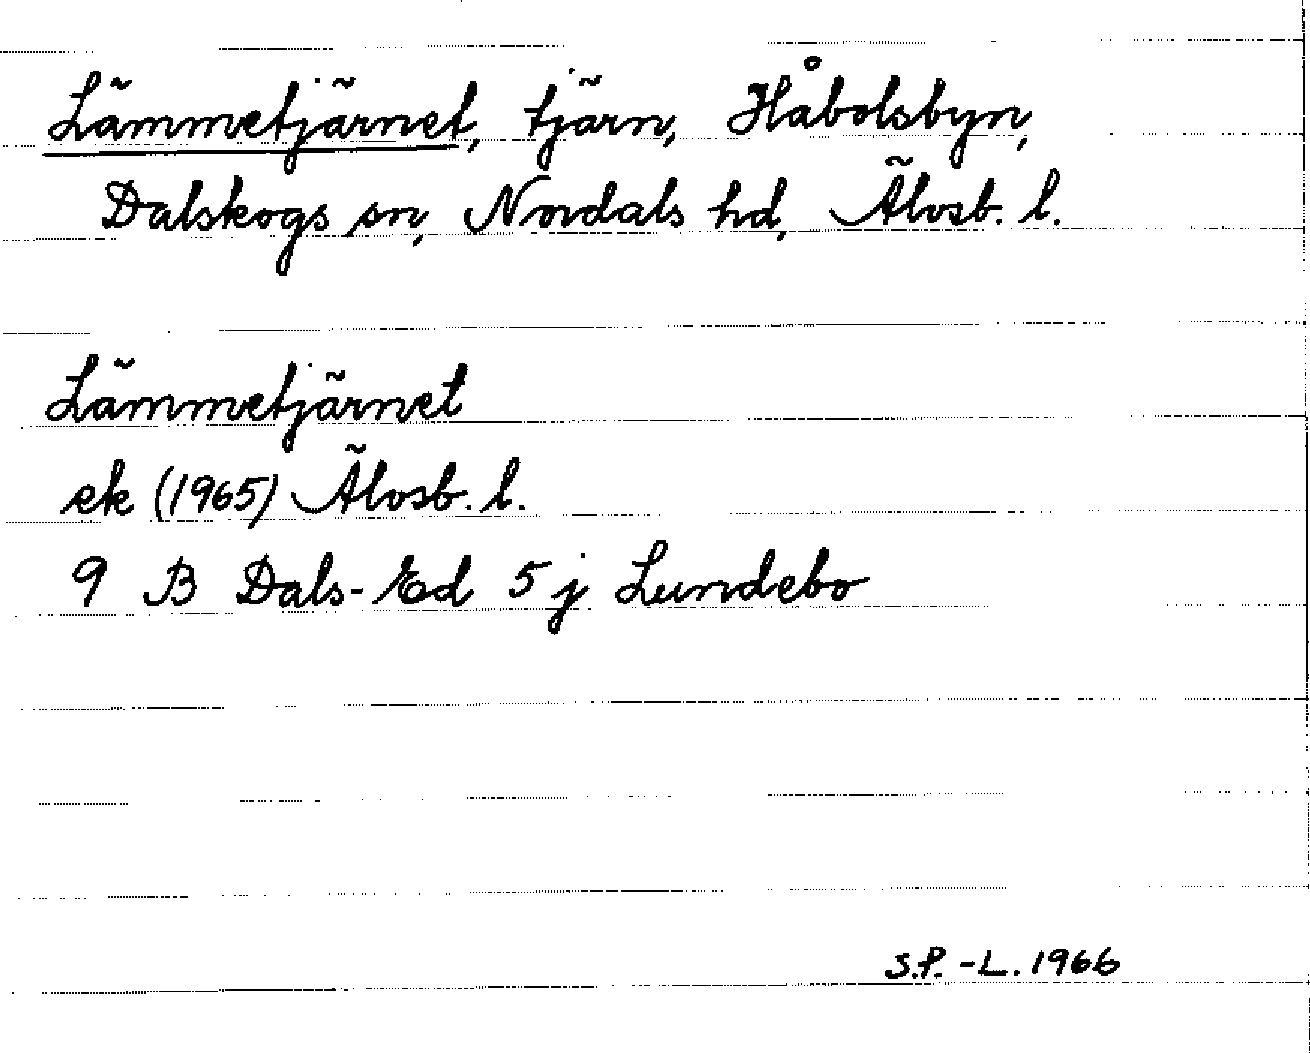 Lämmetjärnet, tjärn, Håbolsbyn,
Dalskogs sn, Nordals hd, Älvsb. l.
Lämmetjärnet
ek (1965) Älvsb. l.
9 B Dals-Ed 5 j Lundebo
S.P.-L. 1966